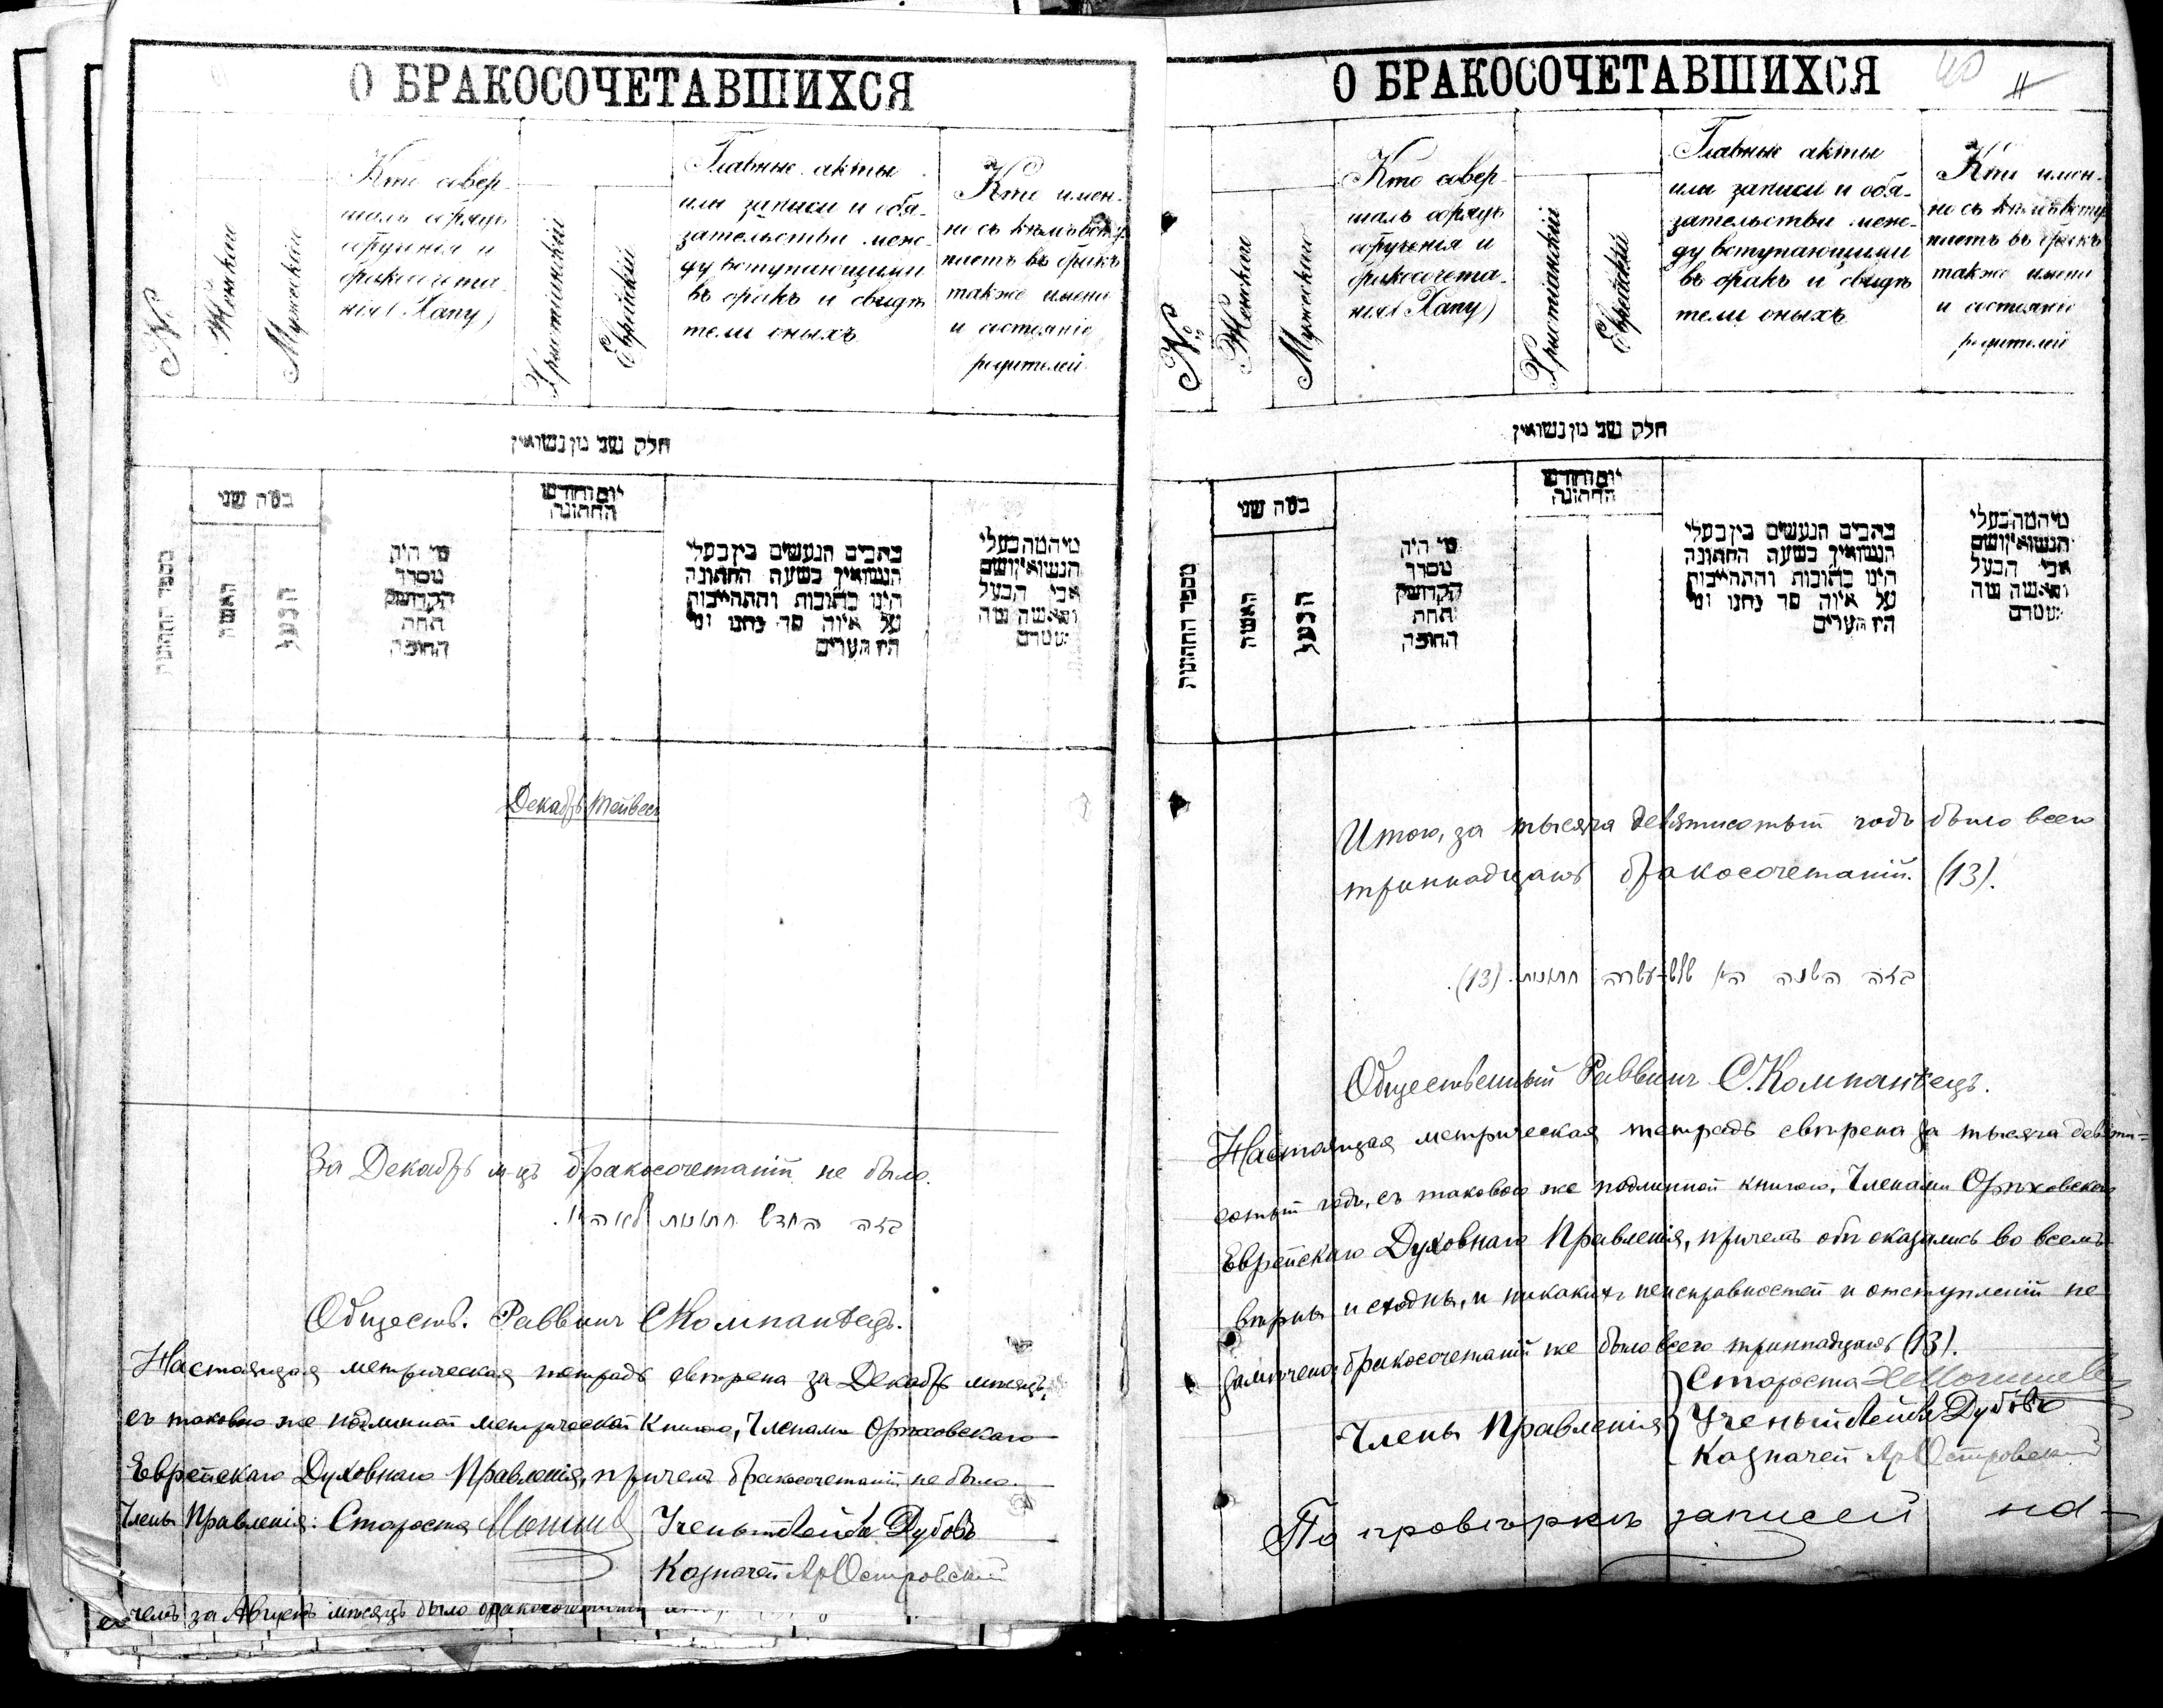 О БРАКОСОЧЕТАВШИХСЯ
№
Женскаго
Мужескаго
Кто совер-
шалъ обрядъ
обрученія и
бракосочета-
нія (Хапу)
Христіанскій
Еврейскій
Главные акты
или записи и обя-
зательства меж-
ду вступающими
въ бракъ и свидѣ
тели оныхъ
Кто имен-
но съ кѣмъ всту
паетъ въ бракъ
также имена
и состояніе
родителей
חלק שני מן נשואין
מספר החתונות
כמה שני
האשה
הבעל
מי היה
מסדר
הקדושין
תחת
החופה
יום וחודש
החתונה
כתבים הנעשים בין בעלי
הנשואין בשעה החתונה
הינו כתובות והתחייבות
על איזה סך נתנו ומי
היו העדים
מיהמהבעלי
הנשואין ושם
אבי הבעל
והאשה ומה
מעמדם
Декабрь Тейвесъ
За Декабрь м-цъ бракосочетаній не было.
בזה החדש חתונות לא היו.
Обществ. Раввинъ С Компанѣецъ.
Настоящая метрическая тетрадь свѣрена за Декабрь мѣсяцъ,
съ таковою же подлинной метрической книгою, Членами Орѣховскаго
Еврейскаго Духовнаго Правленія, причемъ бракосочетаній не было.
Члены Правленія: Староста Ученый Лейба Дубовъ
Казначей Ар Островскій
чемъ за Августъ мѣсяцъ было бракосочетаній
О БРАКОСОЧЕТАВШИХСЯ
40
11
№
Женскаго
Мужескаго
Кто совер-
шалъ обрядъ
обрученія и
бракосочета-
нія (Хапу)
Христіанскій
Еврейскій
Главные акты
или записи и обя-
зательства меж-
ду вступающими
въ бракъ и свидѣ
тели оныхъ
Кто имен-
но съ кѣмъ всту
паетъ въ бракъ
также имена
и состояніе
родителей
חלק שני מן נשואין
מספר החתונות
כמה שני
האשה
הבעל
מי היה
מסדר
הקדושין
תחת
החופה
יום וחודש
החתונה
כתבים הנעשים בין בעלי
הנשואין בשעה החתונה
הינו כתובות והתחייבות
על איזה סך נתנו ומי
היו העדים
מיהמהבעלי
הנשואין ושם
אבי הבעל
והאשה ומה
מעמדם
Итого, за тысяча девятисотый годъ было всего
триннадцать бракосочетаній. (13).
בזה השנה היו שלש-עשרה חתונות. (13).
Общественный Раввинъ С. Компанѣецъ.
Настоящая метрическая тетрадь свѣрена за тысяча девяти=
сотый годъ, съ таковою же подлинной книгою, Членами Орѣховскаго
Еврейскаго Духовнаго Правленія, причемъ обѣ оказались во всемъ
вѣрны и сходны, и никакихъ неисправностей и отступленій не
замѣчено, бракосочетаній же было всего триннадцать (13).
Староста
Члены Правленія Ученый Лейба Дубовъ
Казначей Ар Островскій
По провѣркѣ записей на-